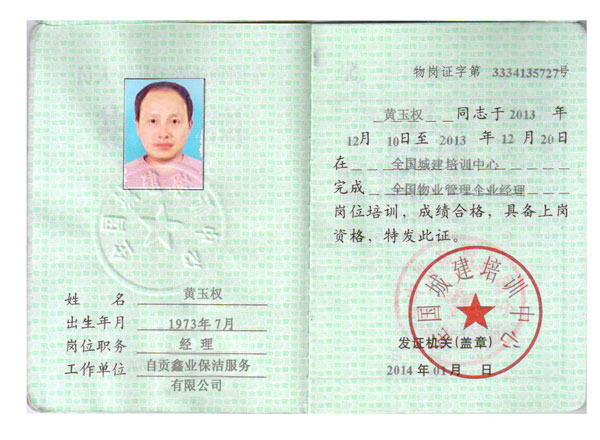 姓 名 黄玉权
出生年月 1973年7月
岗位职务 经 理
工作单位 自贡鑫业保洁服务
有限公司
物岗证字第 3334135727号
黄玉权 同志于 2013 年
12月 10日至 2013 年 12 月 20日
在 全国城建培训中心
完成 全国物业管理企业经理
岗位培训，成绩合格，具备上岗
资格，特发此证。
全国城建培训中心
发证机关(盖章)
2014 年 01月 日